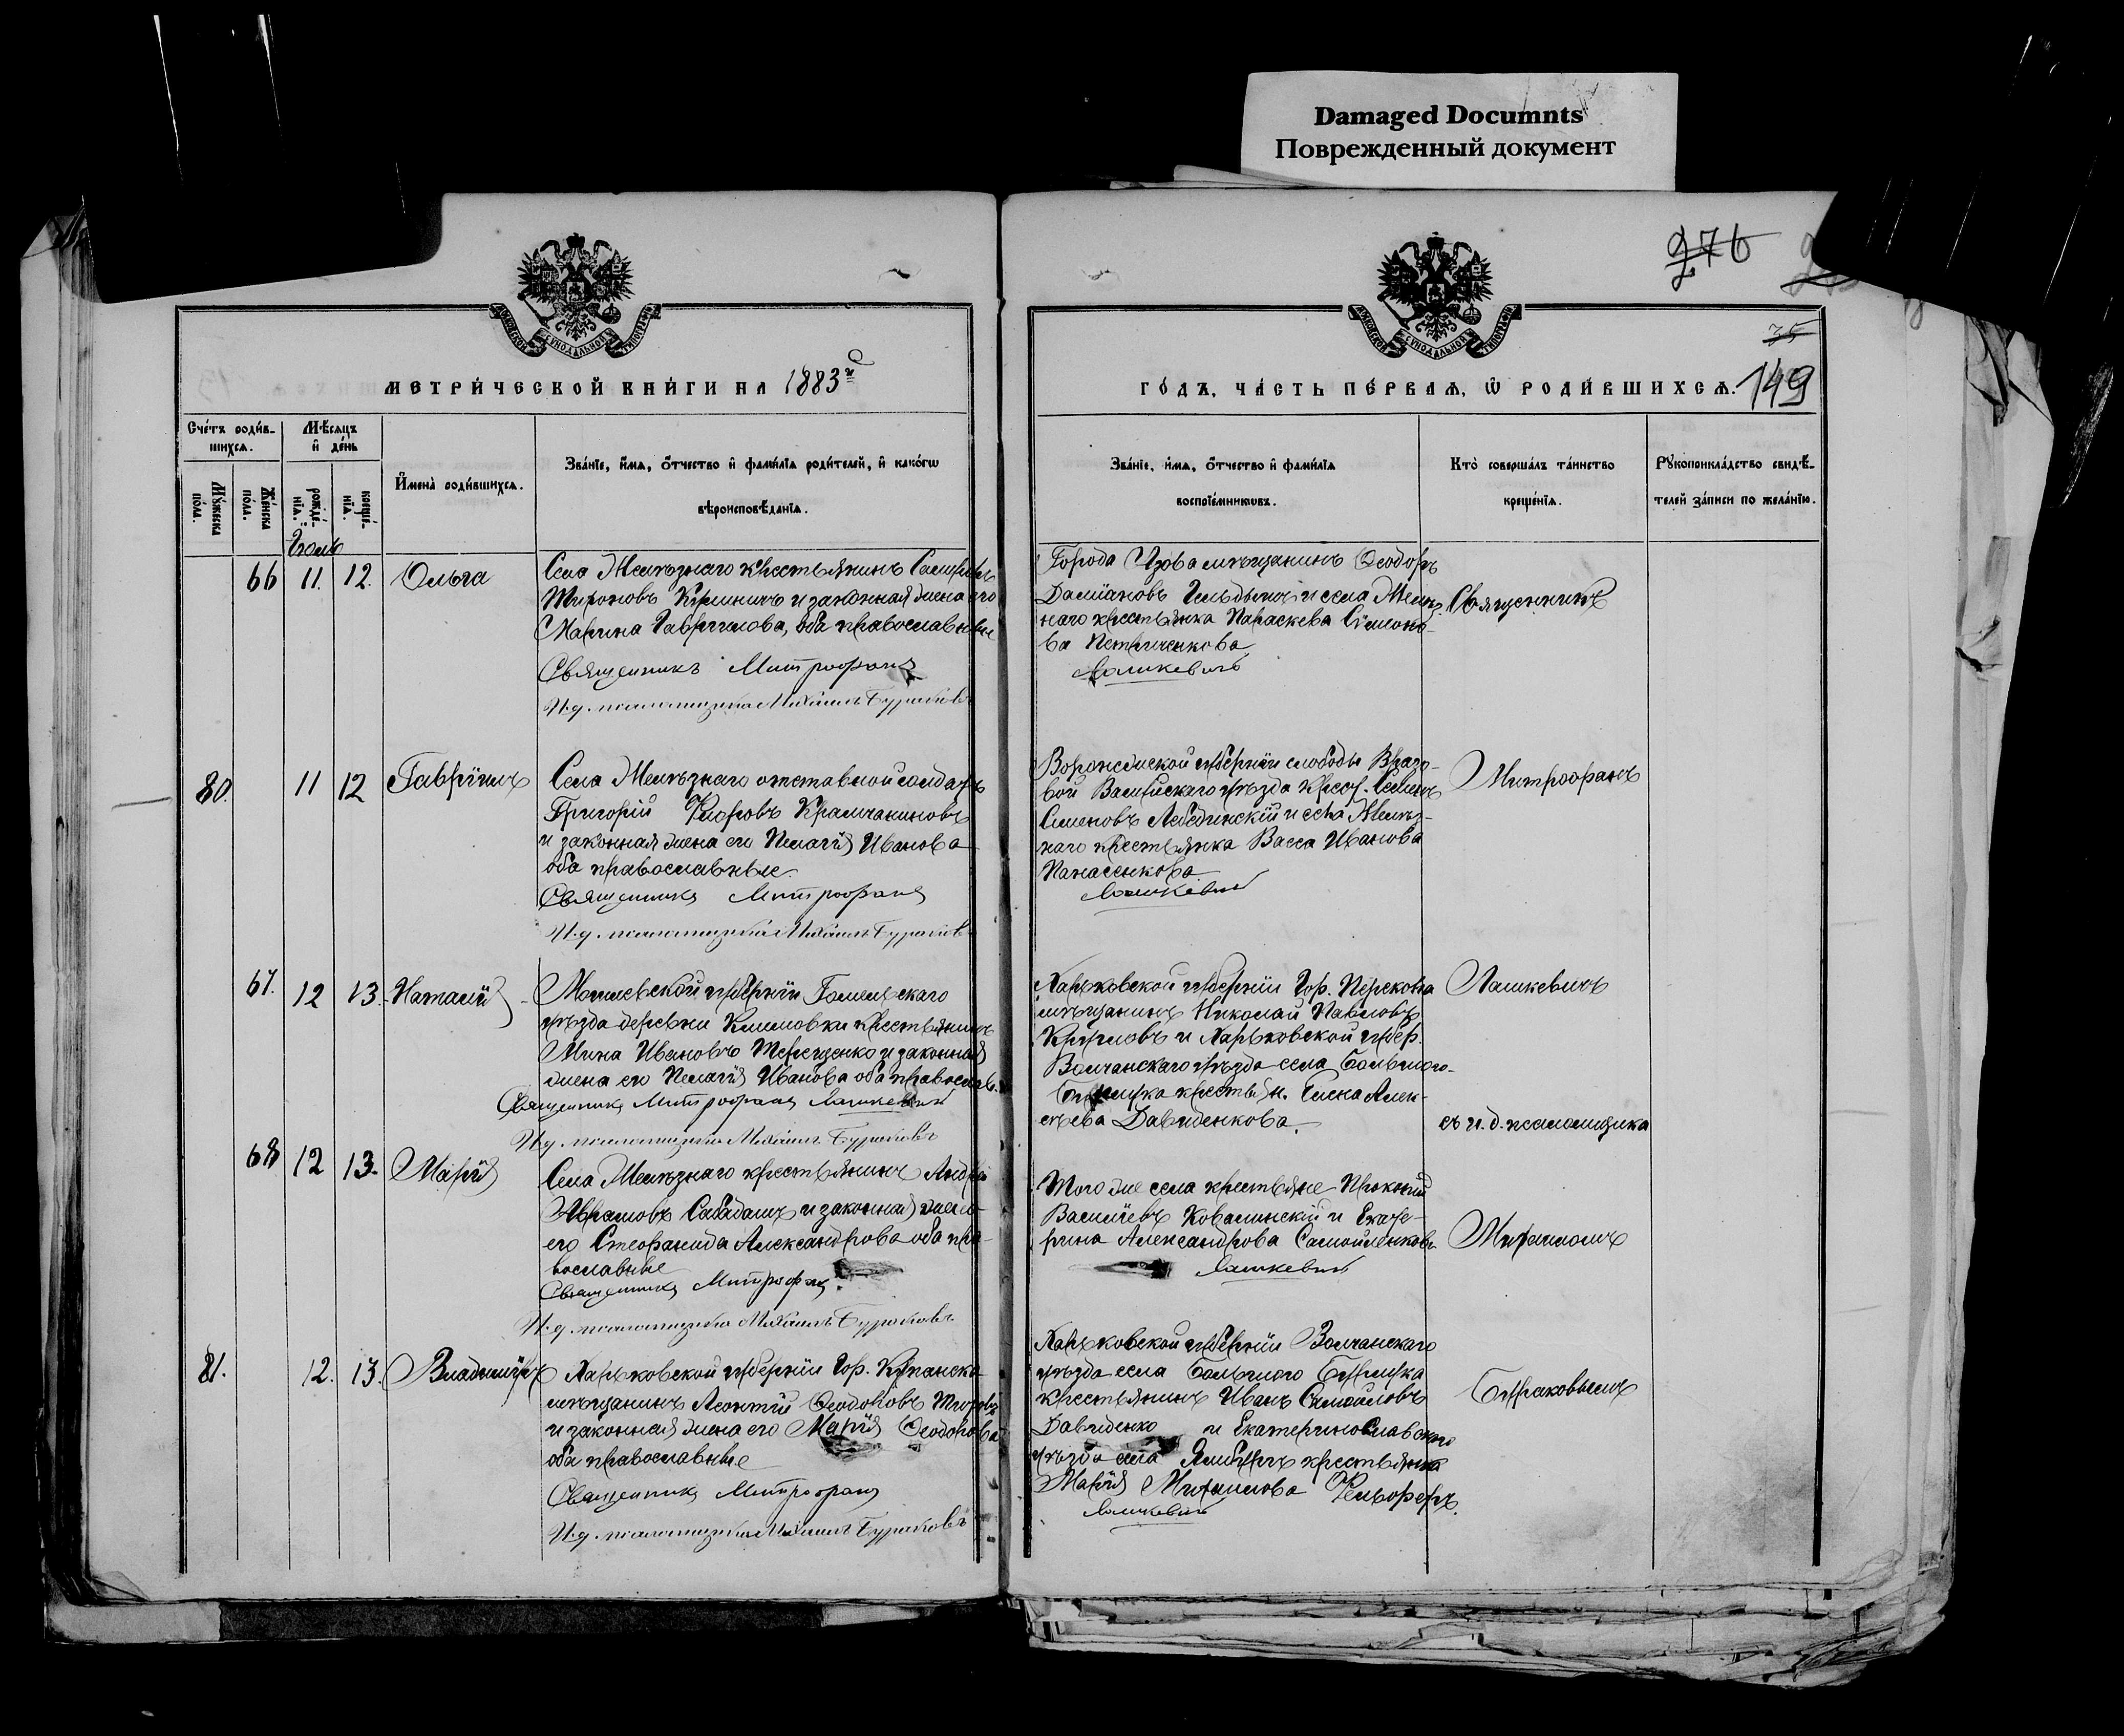 Damaged Documnts
Поврежденный документ
276
35
149
МЕТРИ́ЧЕСКОЙ КНИ́ГИ НА 1883й
ГО́ДЪ, ЧА́СТЬ ПЕ́РВАѦ, Ѡ РОДИ́ВШИХСѦ.
Сче́тъ роди́в-
шихсѧ.
Мѣ́сѧцъ
и де́нь
Имена̀ роди́вшихсѧ.
Зва́нїе, и́мѧ, о́тчество и фами́лїѧ роди́телей, и како́гѡ
вѣроисповѣ́данїѧ.
Му́жеска
по́ла.
Же́нска
по́ла.
рожде́-
нїѧ.
креще́-
нїѧ.
Зва́нїе, и́мѧ, о́тчество и фами́лїѧ
воспрїе́мникѡвъ.
Кто̀ соверша́лъ та́инство
креще́нїѧ.
Рꙋкоприкла́дство свидѣ́-
телей за́писи по жела́нїю.
Іюль
66 11. 12. Ольга
Села Желѣзнаго крестьянинъ
Мироновъ и законная жена его
Марина Гавриилова, оба православные
Священникъ Митрофанъ
И. д. псаломщика Михаилъ Бураковъ
Города Изюма мѣщанинъ Ѳеодоръ
Даміановъ и села Желѣз-
наго крестьянка Параскева Сѵмеоно-
ва Петриченкова
Лашкевичъ
Священникъ
80. 11 12 Гавріилъ
Села Желѣзнаго отставной солдатъ
Григорій Флоровъ Крамчаниновъ
и законная жена его Пелагія Иванова
оба православные.
Священникъ Митрофанъ
И. д. псаломщика Михаилъ Бураковъ
Воронежской губерніи слободы
уѣзда крест. Семенъ
Семеновъ Лебединскій и села Желѣз-
наго крестьянка Васса Иванова
Панасенкова
Лашкевичъ
Митрофанъ
67. 12 13. Наталія
Могилевской губерніи Гомельскаго
уѣзда деревни Климовки крестьянинъ
Мина Ивановъ Терещенко и законная
жена его Пелагія Иванова оба православн.
Священникъ Митрофанъ Лашкевичъ
И. д. псаломщика Михаилъ Бураковъ
Харьковской губерніи Гор.
мѣщанинъ Николай Павловъ
Кругловъ и Харьковской губер.
Волчанскаго уѣзда села Большого-
Бурлука крестьян. Елена Алек-
сѣева Давиденкова.
Лашкевичъ
съ и. д. псаломщика
68 12 13. Марія
Села Желѣзнаго крестьянинъ Андрей
Аврамовъ Сабадашъ и законная жена
его Стефанида Александрова оба пра-
вославные
Священникъ Митрофанъ
И. д. псаломщика Михаилъ Бураковъ
Того же села крестьяне Прокопій
Васильевъ Ковалинскій и Екате-
рина Александрова Самойленкова
Лашкевичъ
Михаиломъ
81. 12. 13. Владиміръ
Харьковской губерніи Гор. Купянска
мѣщанинъ Леонтій Ѳеодоровъ
и законная жена его Марія Ѳеодорова
оба православные
Священникъ Митрофанъ
И. д. псаломщика Михаилъ Бураковъ
Харьковской губерніи Волчанскаго
уѣзда села Большого Бурлука
крестьянинъ Иванъ Самойловъ
Давиденко и Екатеринославскаго
уѣзда села Ямбургъ крестьянка
Марія Михаилова
Лашкевичъ
Бураковымъ